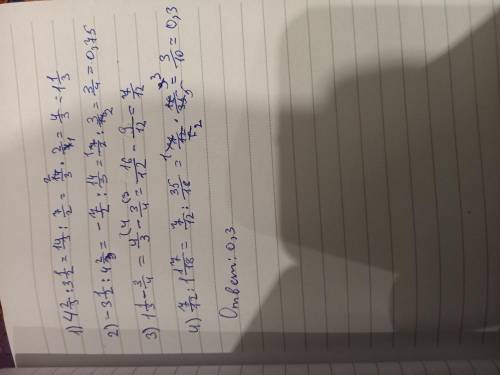 1) 4 2/3 : 3 1/2 = 14/3 : 7/2 = 14/3 · 2/7 = 4/3 = 1 1/3
2) -3 1/2 : 4 2/3 = -7/2 : 14/3 = 7/2 : 3/14 = 3/4 = 0,75
3) 1 1/3 - 3/4 = 4/3 - 3/4 = 16/12 - 9/12 = 7/12
4) 7/12 : 1 17/18 = 7/12 : 35/18 = 7/12 · 18/35 = 3/10 = 0,3
Ответ: 0,3